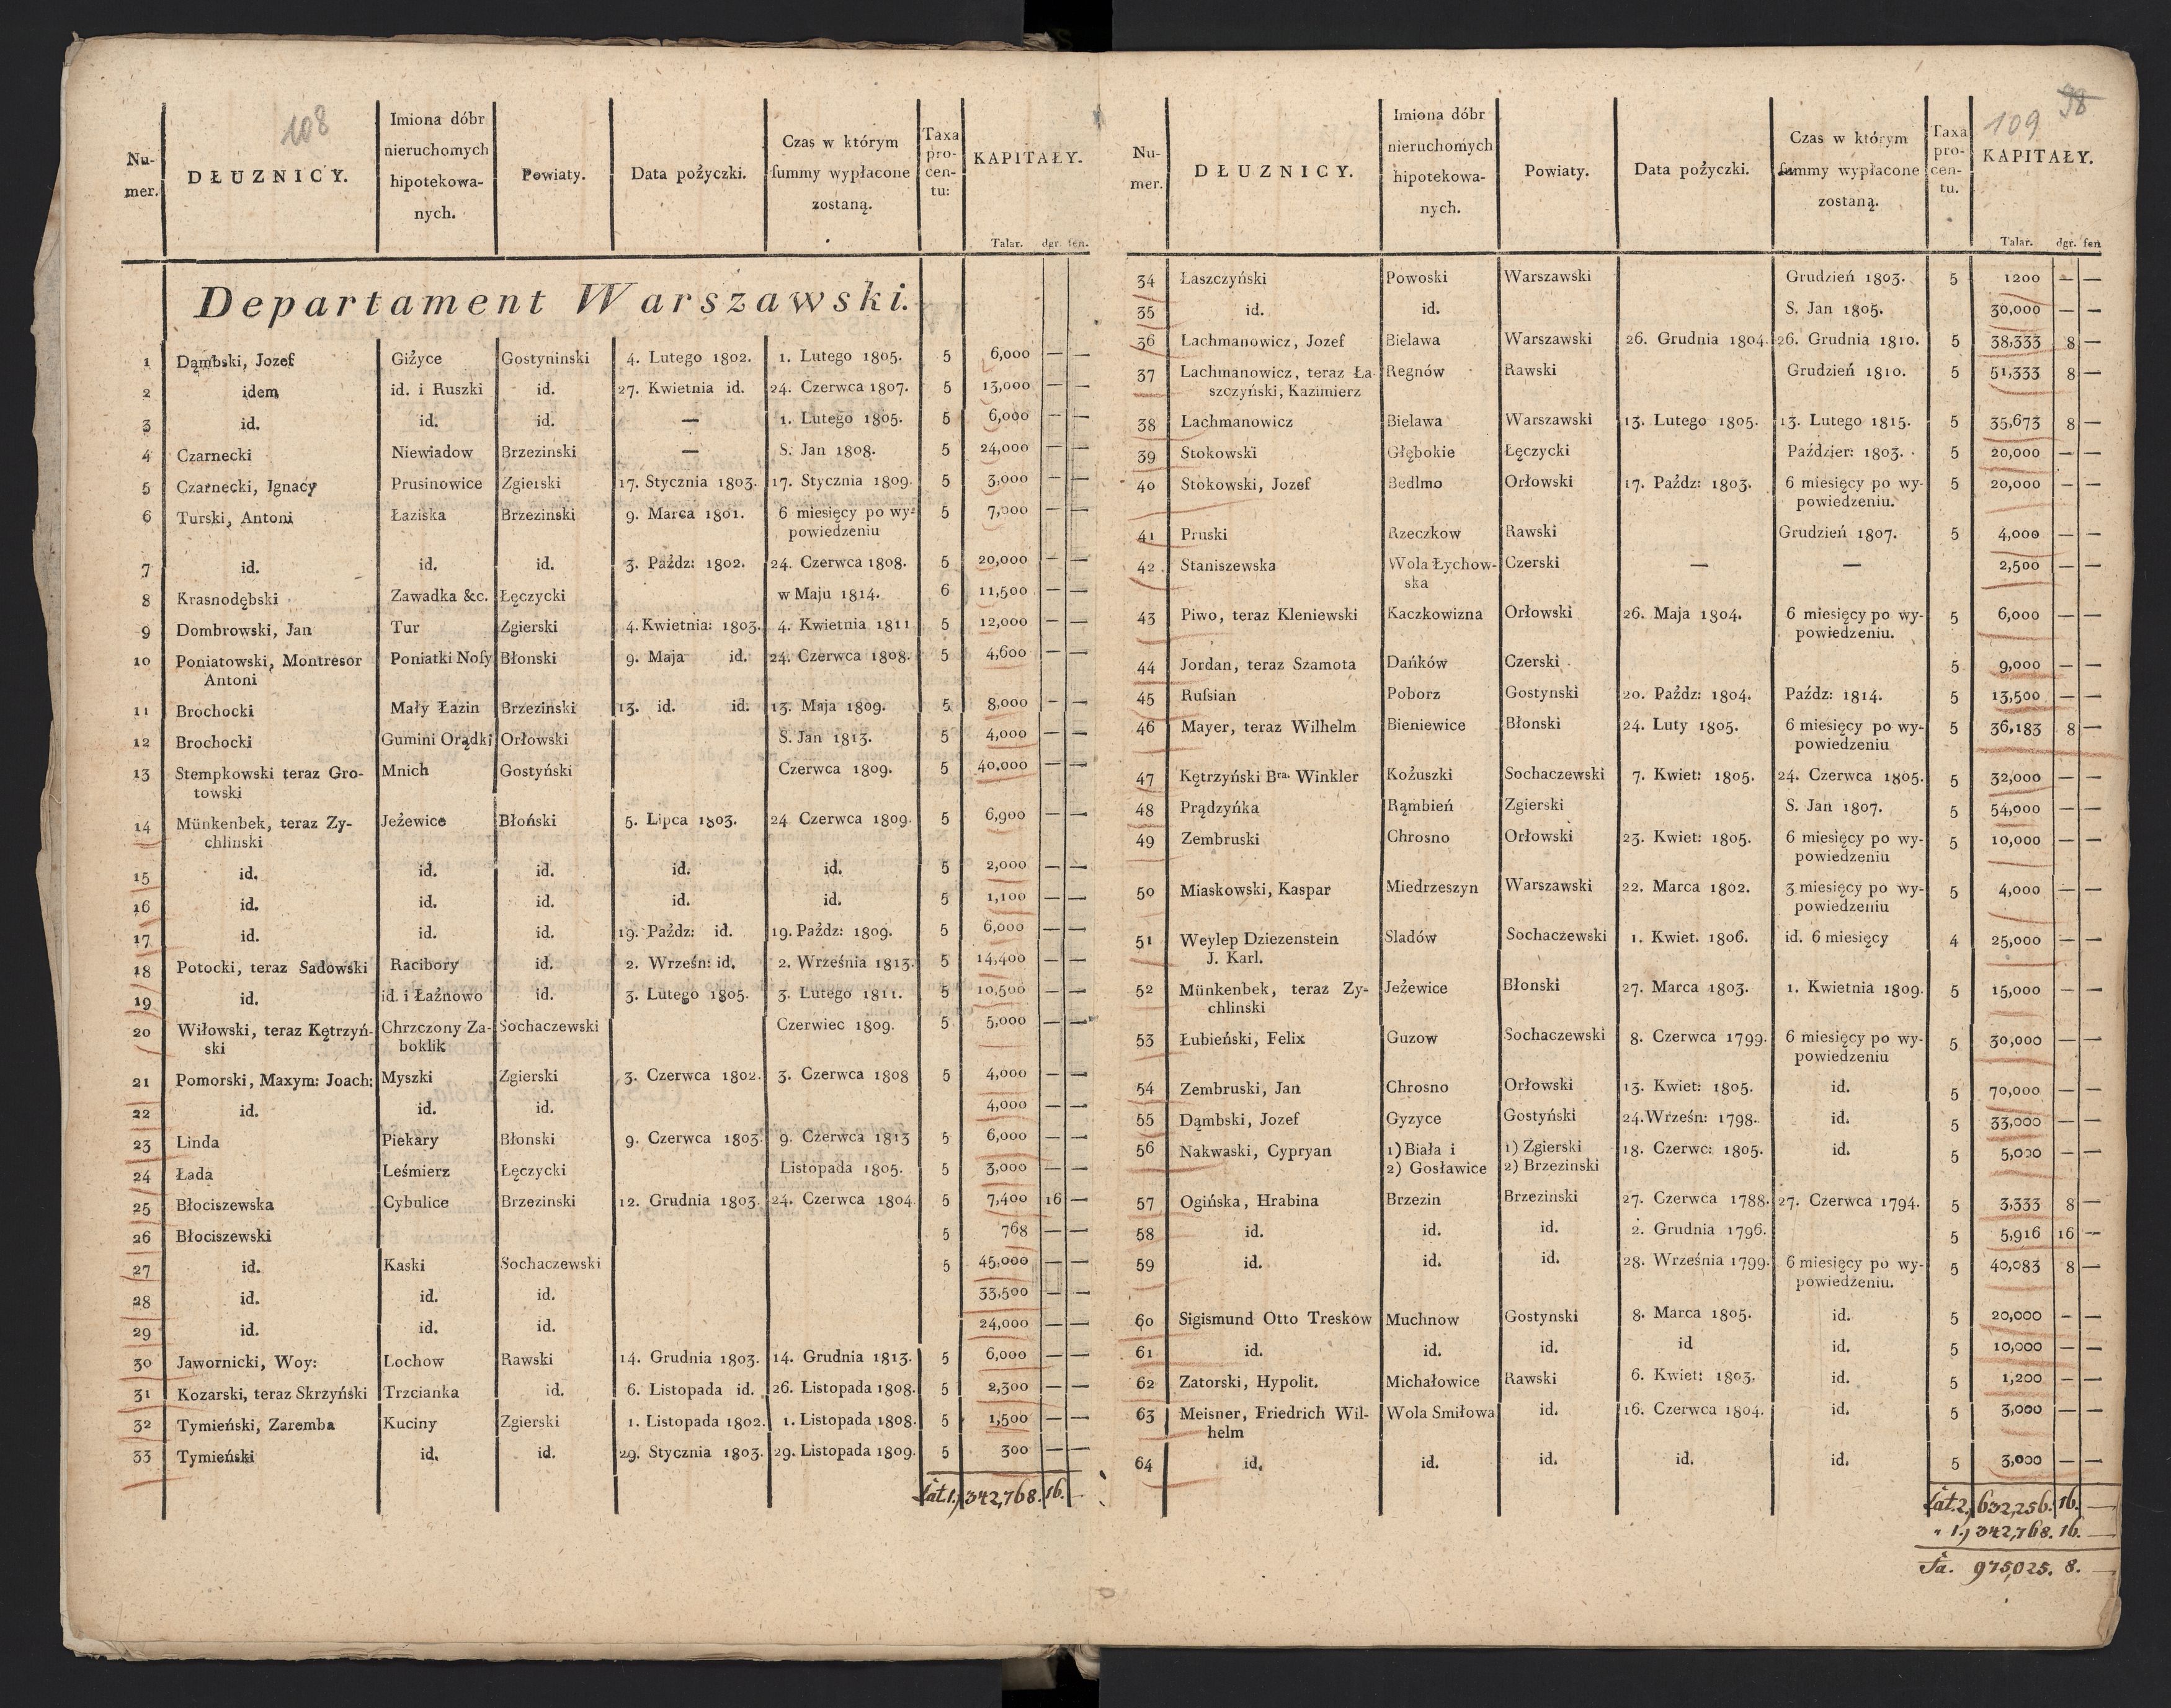 108
Nu-
mer.
DŁUZNICY.
Imiona dóbr
nieruchomych
hipotekowa-
nych.
Powiaty.
Data pożyczki.
Czas w którym
ſummy wypłacone
zostaną.
Taxa
pro-
cen-
tu:
KAPITAŁY.
Talar. dgr. fen.
Departament Warszawski.
1 Dąmbski, Jozef Giżyce Gostyninski 4. Lutego 1802. 1. Lutego 1805. 5 6,000 — —
2 idem id. i Ruszki id. 27. Kwietnia id. 24. Czerwca 1807. 5 13,000 — —
3 id. id. id. — 1. Lutego 1805. 5 6,000 — —
4 Czarnecki Niewiadow Brzezinski — S. Jan 1808. 5 24,000 — —
5 Czarnecki, Ignacy Prusinowice Zgierski 17. Stycznia 1803. 17. Stycznia 1809. 5 3,000 — —
6 Turski, Antoni Łaziska Brzezinski 9. Marca 1801. 6 miesięcy po wy- 5 7,000 — —
powiedzeniu
7 id. id. id. 3. Paźdz: 1802. 24. Czerwca 1808. 5 20,000 — —
8 Krasnodębski Zawadka &c. Łęczycki w Maju 1814. 6 11,500 — —
9 Dombrowski, Jan Tur Zgierski 4. Kwietnia: 1803. 4. Kwietnia 1811 5 12,000 — —
10 Poniatowski, Montresor Poniatki Noſy Błonski 9. Maja id. 24. Czerwca 1808. 5 4,600 — —
Antoni
11 Brochocki Mały Łazin Brzezinski 13. id. id. 13. Maja 1809. 5 8,000 — —
12 Brochocki Gumini Orądki Orłowski S. Jan 1813. 5 4,000 — —
13 Stempkowski teraz Gro- Mnich Gostyński Czerwca 1809. 5 40,000 — —
towski
14 Münkenbek, teraz Zy- Jeżewice Błoński 5. Lipca 1803. 24 Czerwca 1809. 5 6,900 — —
chlinski
15 id. id. id. id. id. 5 2,000 — —
16 id. id. id. id. id. 5 1,100 — —
17 id. id. id. 19. Paźdz: id. 19. Paźdz: 1809. 5 6,000 — —
18 Potocki, teraz Sadowski Racibory id. 2. Wrześn: id. 2. Września 1813. 5 14,400 — —
19 id. id. i Łaźnowo id. 3. Lutego 1805. 3. Lutego 1811. 5 10,500 — —
20 Wiłowski, teraz Kętrzyń- Chrzczony Za- Sochaczewski Czerwiec 1809. 5 5,000 — —
ski boklik
21 Pomorski, Maxym: Joach: Myszki Zgierski 3. Czerwca 1802. 3. Czerwca 1808 5 4,000 — —
22 id. id. id. 4,000 — —
23 Linda Piekary Błonski 9. Czerwca 1803. 9. Czerwca 1813 5 6,000 — —
24 Łada Leśmierz Łęczycki Listopada 1805. 5 3,000 — —
25 Błociszewska Cybulice Brzezinski 12. Grudnia 1803. 24. Czerwca 1804 5 7,400 16 —
26 Błociszewski 5 768 — —
27 id. Kaski Sochaczewski 5 45,000 — —
28 id. id. id. 33,500 — —
29 id. id. id. 24,000 — —
30 Jawornicki, Woy: Lochow Rawski 14. Grudnia 1803. 14. Grudnia 1813. 5 6,000 — —
31 Kozarski, teraz Skrzyński Trzcianka id. 6. Listopada id. 26. Listopada 1808. 5 2,300 — —
32 Tymieński, Zaremba Kuciny Zgierski 1. Listopada 1802. 1. Listopada 1808. 5 1,500 — —
33 Tymieński id. id. 29. Stycznia 1803. 29. Listopada 1809. 5 300 — —
Lat. 1. 342,768. 16. —
109 98
Nu-
mer.
DŁUZNICY.
Imiona dóbr
nieruchomych
hipotekowa-
nych.
Powiaty.
Data pożyczki.
Czas w którym
ſummy wypłacone
zostaną.
Taxa
pro-
cen-
tu.
KAPITAŁY.
Talar. dgr. fen
34 Łaszczyński Powoski Warszawski Grudzień 1803. 5 1200 — —
35 id. id. S. Jan 1805. 30,000 — —
36 Lachmanowicz, Jozef Bielawa Warszawski 26. Grudnia 1804. 26. Grudnia 1810. 5 38,333 8 —
37 Lachmanowicz, teraz Ła- Regnów Rawski Grudzień 1810. 5 51,333 8 —
szczyński, Kazimierz
38 Lachmanowicz Bielawa Warszawski 13. Lutego 1805. 13. Lutego 1815. 5 35,673 8 —
39 Stokowski Głębokie Łęczycki Paździer: 1803. 5 20,000 — —
40 Stokowski, Jozef Bedlmo Orłowski 17. Paźdz: 1803. 6 miesięcy po wy- 5 20,000 — —
powiedzeniu.
41 Pruski Rzeczkow Rawski Grudzień 1807. 5 4,000 — —
42 Staniszewska Wola Łychow- Czerski — — 2,500 — —
ska
43 Piwo, teraz Kleniewski Kaczkowizna Orłowski 26. Maja 1804. 6 miesięcy po wy- 5 6,000 — —
powiedzeniu.
44 Jordan, teraz Szamota Dańków Czerski 5 9,000 — —
45 Ruſsian Poborz Gostynski 20. Paźdz: 1804. Paźdz: 1814. 5 13,500 — —
46 Mayer, teraz Wilhelm Bieniewice Błonski 24. Luty 1805. 6 miesięcy po wy- 5 36,183 8 —
powiedzeniu
47 Kętrzyński Bra. Winkler Kożuszki Sochaczewski 7. Kwiet: 1805. 24. Czerwca 1805. 5 32,000 — —
48 Prądzyńka Rąmbień Zgierski S. Jan 1807. 5 54,000 — —
49 Zembruski Chrosno Orłowski 23. Kwiet: 1805. 6 miesięcy po wy- 5 10,000 — —
powiedzeniu
50 Miaskowski, Kaspar Miedrzeszyn Warszawski 22. Marca 1802. 3 miesięcy po wy- 5 4,000 — —
powiedzeniu
51 Weylep Dziezenstein Sladów Sochaczewski 1. Kwiet. 1806. id. 6 miesięcy 4 25,000 — —
J. Karl.
52 Münkenbek, teraz Zy- Jeżewice Błonski 27. Marca 1803. 1. Kwietnia 1809. 5 15,000 — —
chlinski
53 Łubieński, Felix Guzow Sochaczewski 8. Czerwca 1799. 6 miesięcy po wy- 5 30,000 — —
powiedzeniu
54 Zembruski, Jan Chrosno Orłowski 13. Kwiet: 1805. id. 5 70,000 — —
55 Dąmbski, Jozef Gyzyce Gostyński 24. Wrześn: 1798. id. 5 33,000 — —
56 Nakwaski, Cypryan 1) Biała i 1) Zgierski 18. Czerwc: 1805. id. 5 5,000 — —
2) Gosławice 2) Brzezinski
57 Ogińska, Hrabina Brzezin Brzezinski 27. Czerwca 1788. 27. Czerwca 1794. 5 3,333 8 —
58 id. id. id. 2. Grudnia 1796. 5 5,916 16 —
59 id. id. id. 28. Września 1799. 6 miesięcy po wy- 5 40,083 8 —
powiedzeniu.
60 Sigismund Otto Treskow Muchnow Gostynski 8. Marca 1805. id. 5 20,000 — —
61 id. id. id. id id. 5 10,000 — —
62 Zatorski, Hypolit. Michałowice Rawski 6. Kwiet: 1803. id. 5 1,200 — —
63 Meisner, Friedrich Wil- Wola Smiłowa id. 16. Czerwca 1804. id. 5 3,000 — —
helm
64 id. id. id. id. id. 5 3,000 — —
Lat. 2. 632,256. 16. —
" 1. 342,768. 16. —
Sa. 975,025. 8. —